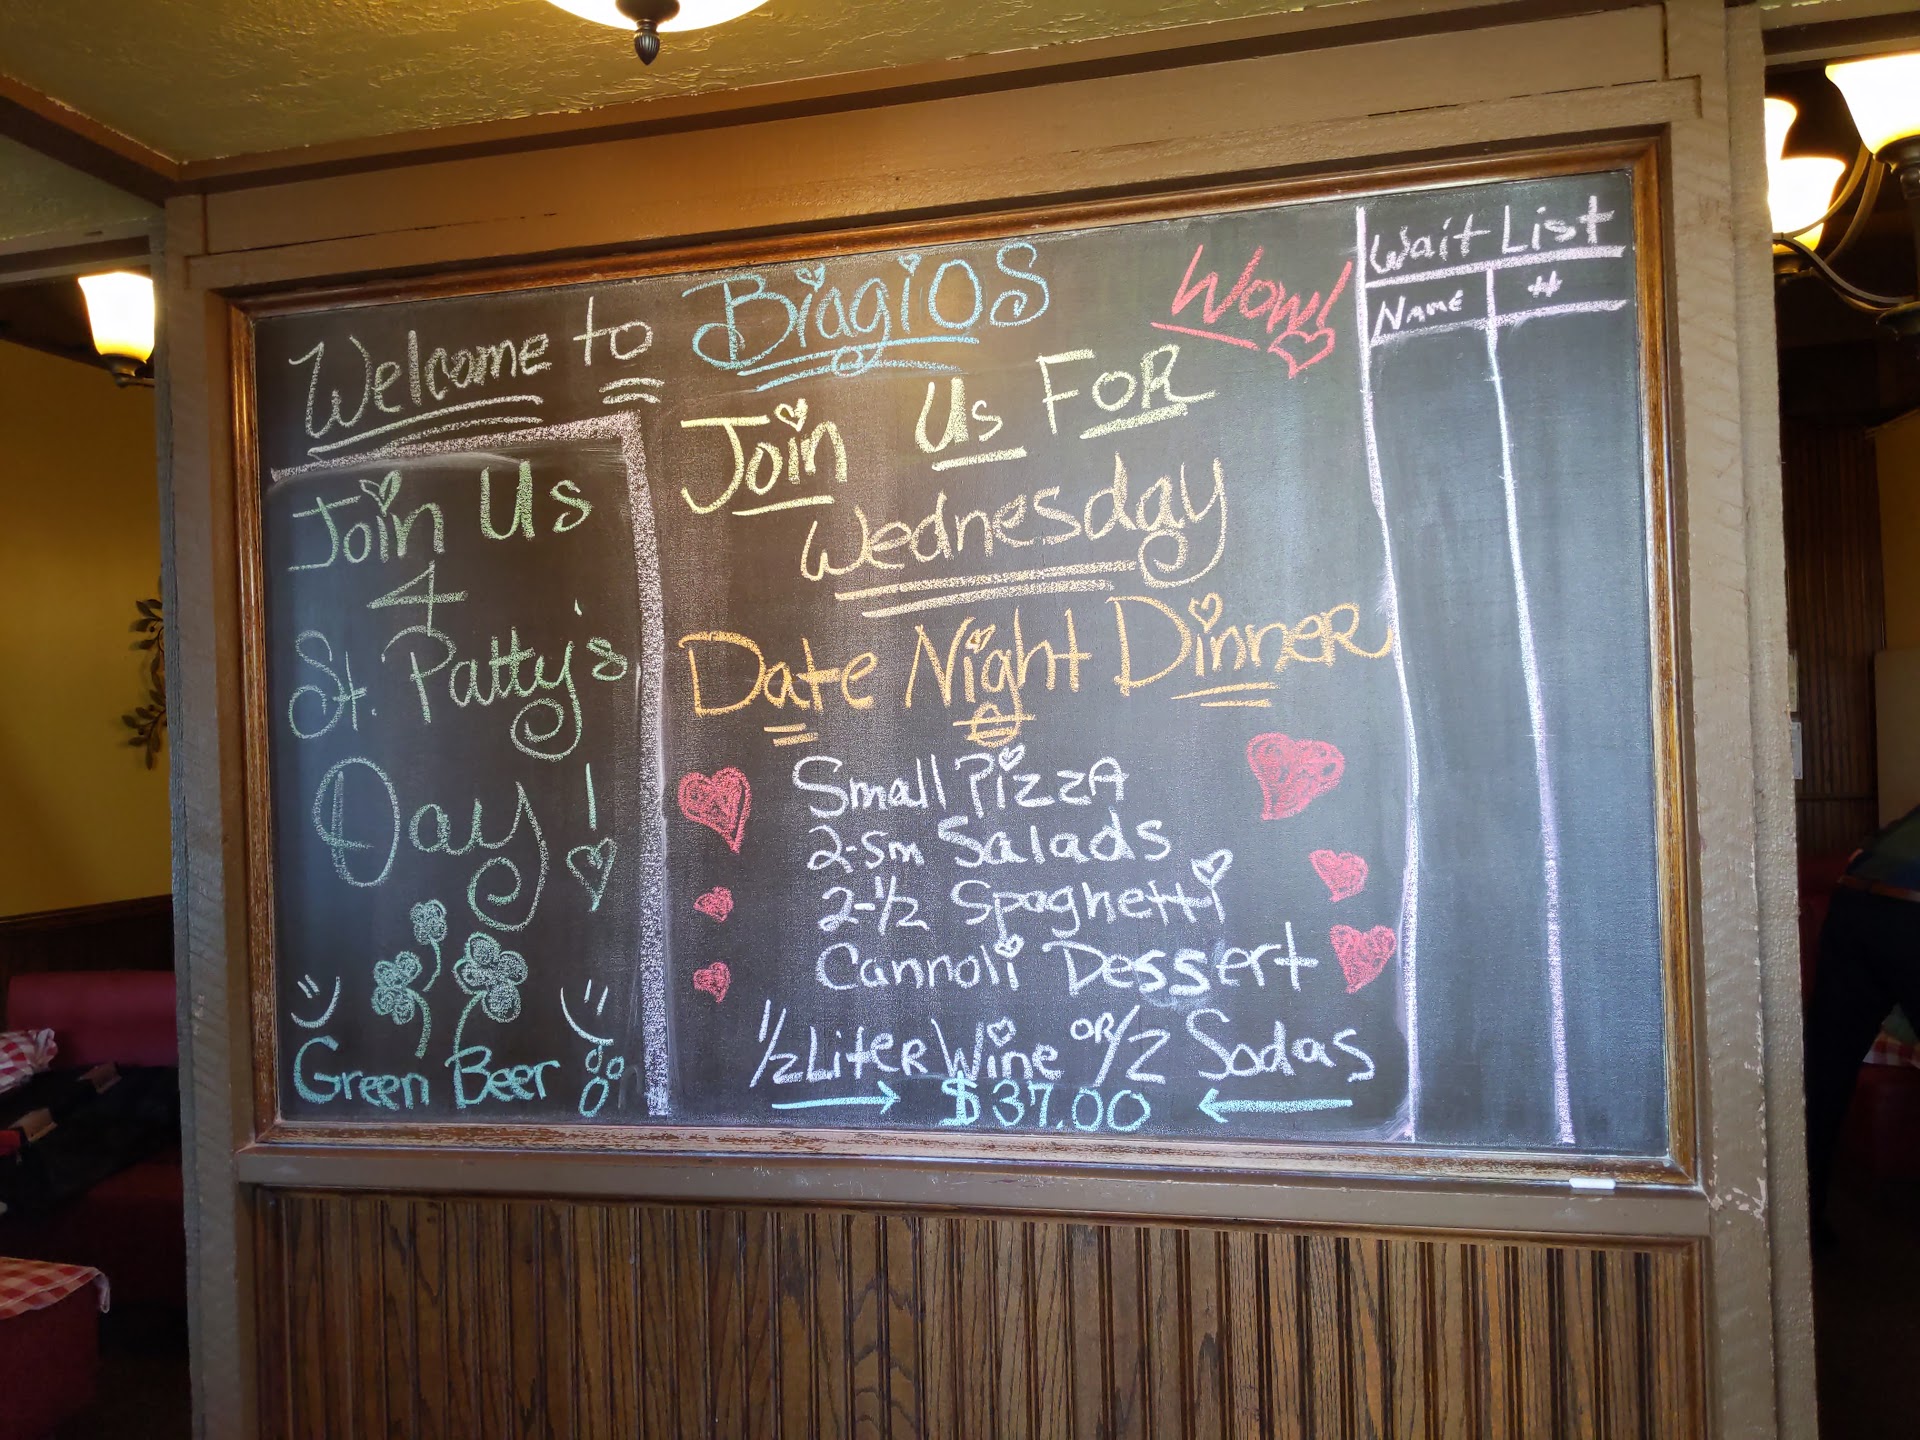 Welcome to BiagiOS
Join Us
4
St. Patty's
Day!
Green Beer
Wow!
Join Us FOR
Wednesday
Date Night DinneR
Small PizzA
2-Sm Salads
2-1/2 Spaghetti
Cannoli Dessert
1/2 LiteR Wine OR/2 Sodas
$37.00
Wait List
Name #